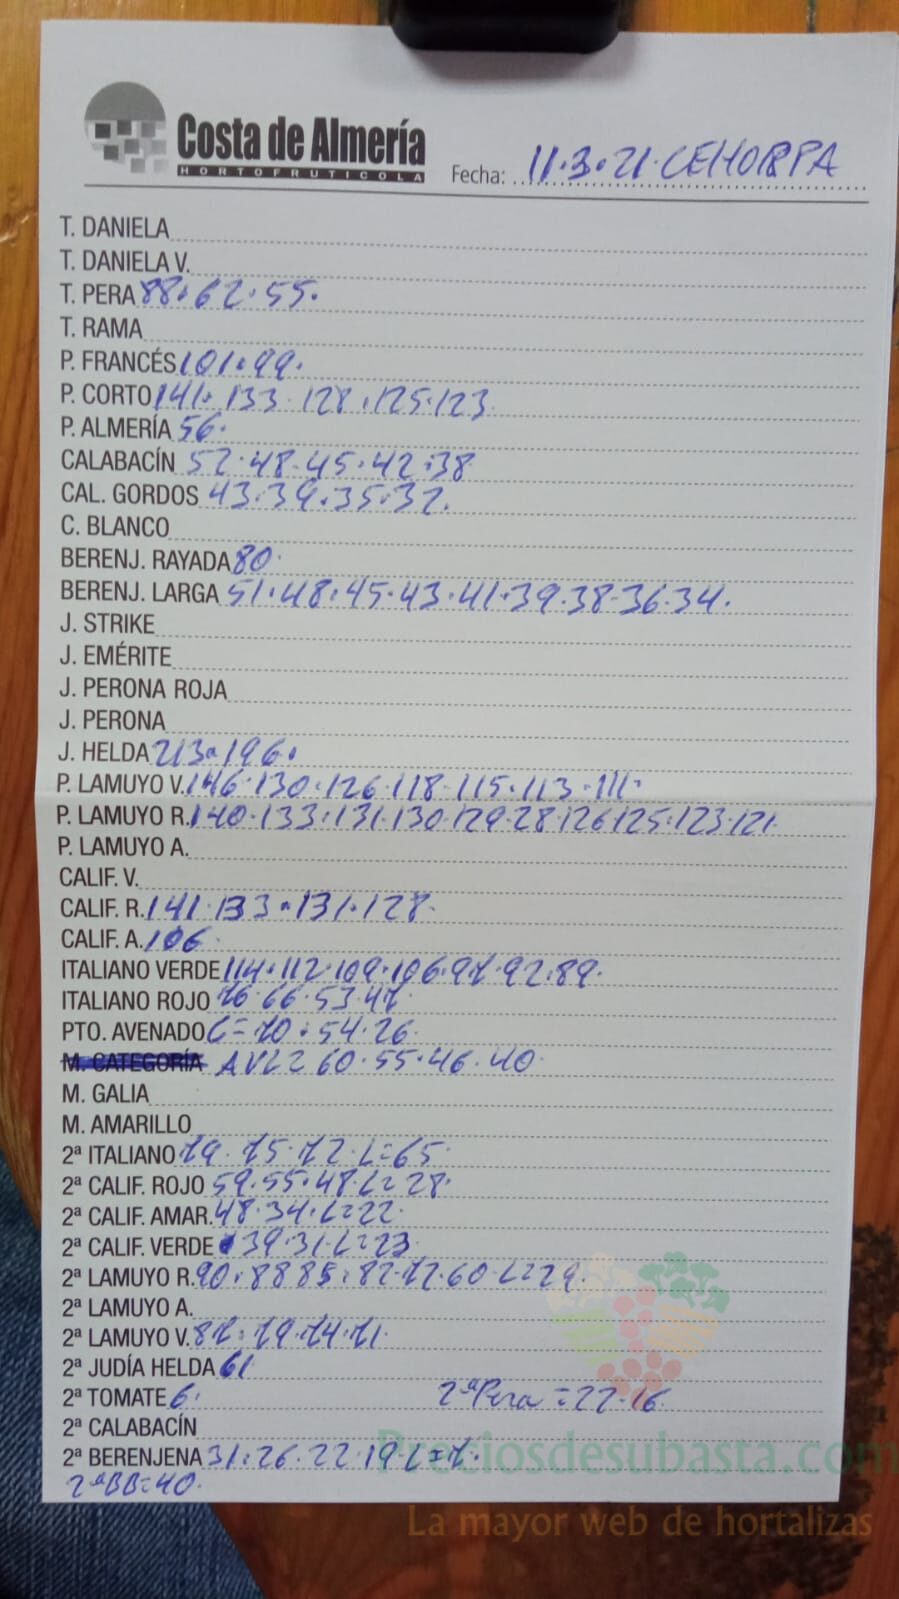 Costa de Almería
HORTOFRUTICOLA
Fecha: 11.3.21. CEHORPA
T. DANIELA
T. DANIELA V.
T. PERA 88.62.55.
T. RAMA
P. FRANCÉS 101.99.
P. CORTO 141.133.128.125.123
P. ALMERÍA 56.
CALABACÍN 52.48.45.42.38
CAL. GORDOS 43.39.35.32.
C. BLANCO
BERENJ. RAYADA 80.
BERENJ. LARGA 51.48.45.43.41.39.38.36.34.
J. STRIKE
J. EMÉRITE
J. PERONA ROJA
J. PERONA
J. HELDA 213.196.
P. LAMUYO V. 146.130.126.118.115.113.111.
P. LAMUYO R. 140.133.131.130.129.28.126.125.123.121.
P. LAMUYO A.
CALIF. V.
CALIF. R. 141.133.131.128.
CALIF. A. 106.
ITALIANO VERDE 114.112.109.106.97.92.89.
ITALIANO ROJO 76.66.53.47.
PTO. AVENADO C=70.54.26.
M. CATEGORÍA AVL2 60.55.46.40.
M. GALIA
M. AMARILLO
2ª ITALIANO 79.75.72.L=65.
2ª CALIF. ROJO 59.55.48.L=28.
2ª CALIF. AMAR. 48.34.L=22.
2ª CALIF. VERDE 39.31.L=23.
2ª LAMUYO R. 90.88.85.82.72.60.L=29.
2ª LAMUYO A.
2ª LAMUYO V. 87.79.74.71.
2ª JUDÍA HELDA 61
2ª TOMATE 6. 2ª Pera=22.16.
2ª CALABACÍN
2ª BERENJENA 31.26.22.19.L=7.
2ª BB=40.
Preciosdesubasta.com
La mayor web de hortalizas